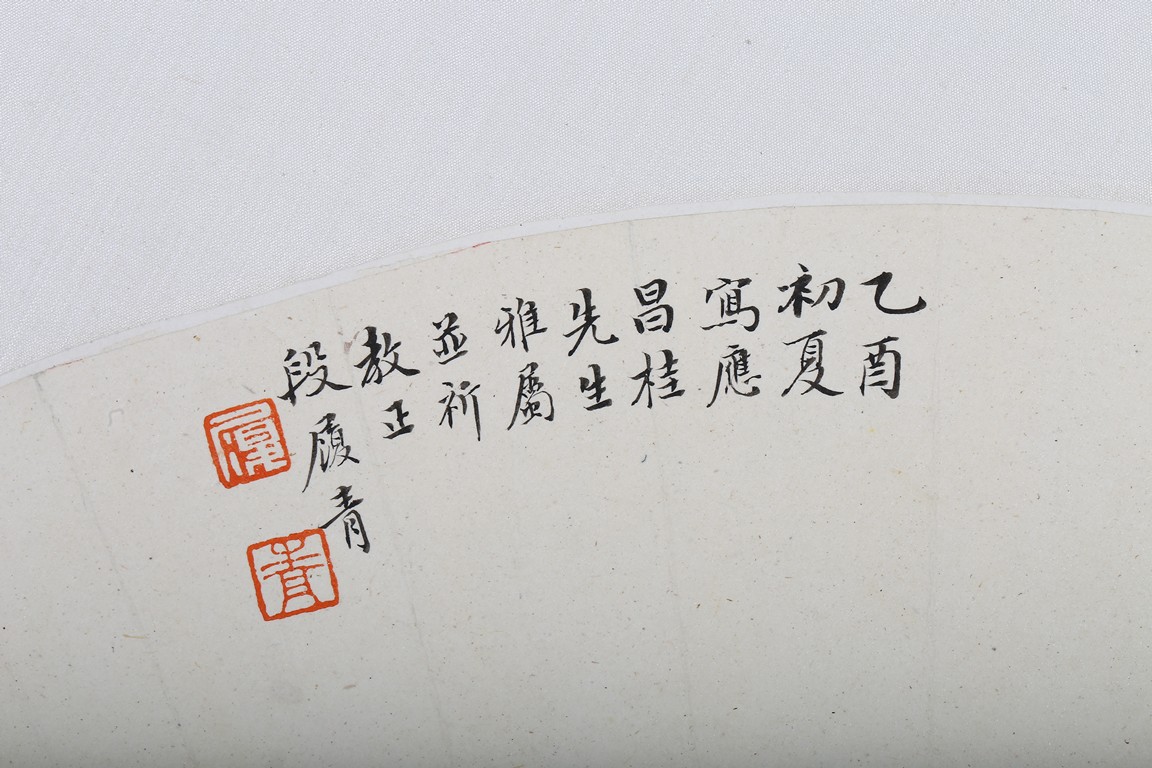 乙酉
初夏
寫應
昌桂
先生
雅屬
並祈
教正
段履青
履
青